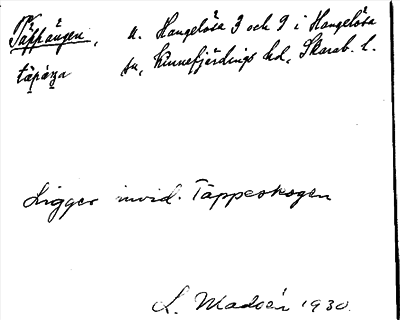 Täppängen, u. Hangelösa 3 och 9 i Hangelösa
sn, Kinnefjärdings hd, Skarab. l.
Ligger invid. Täppeskogen
L. Modéer 1930.